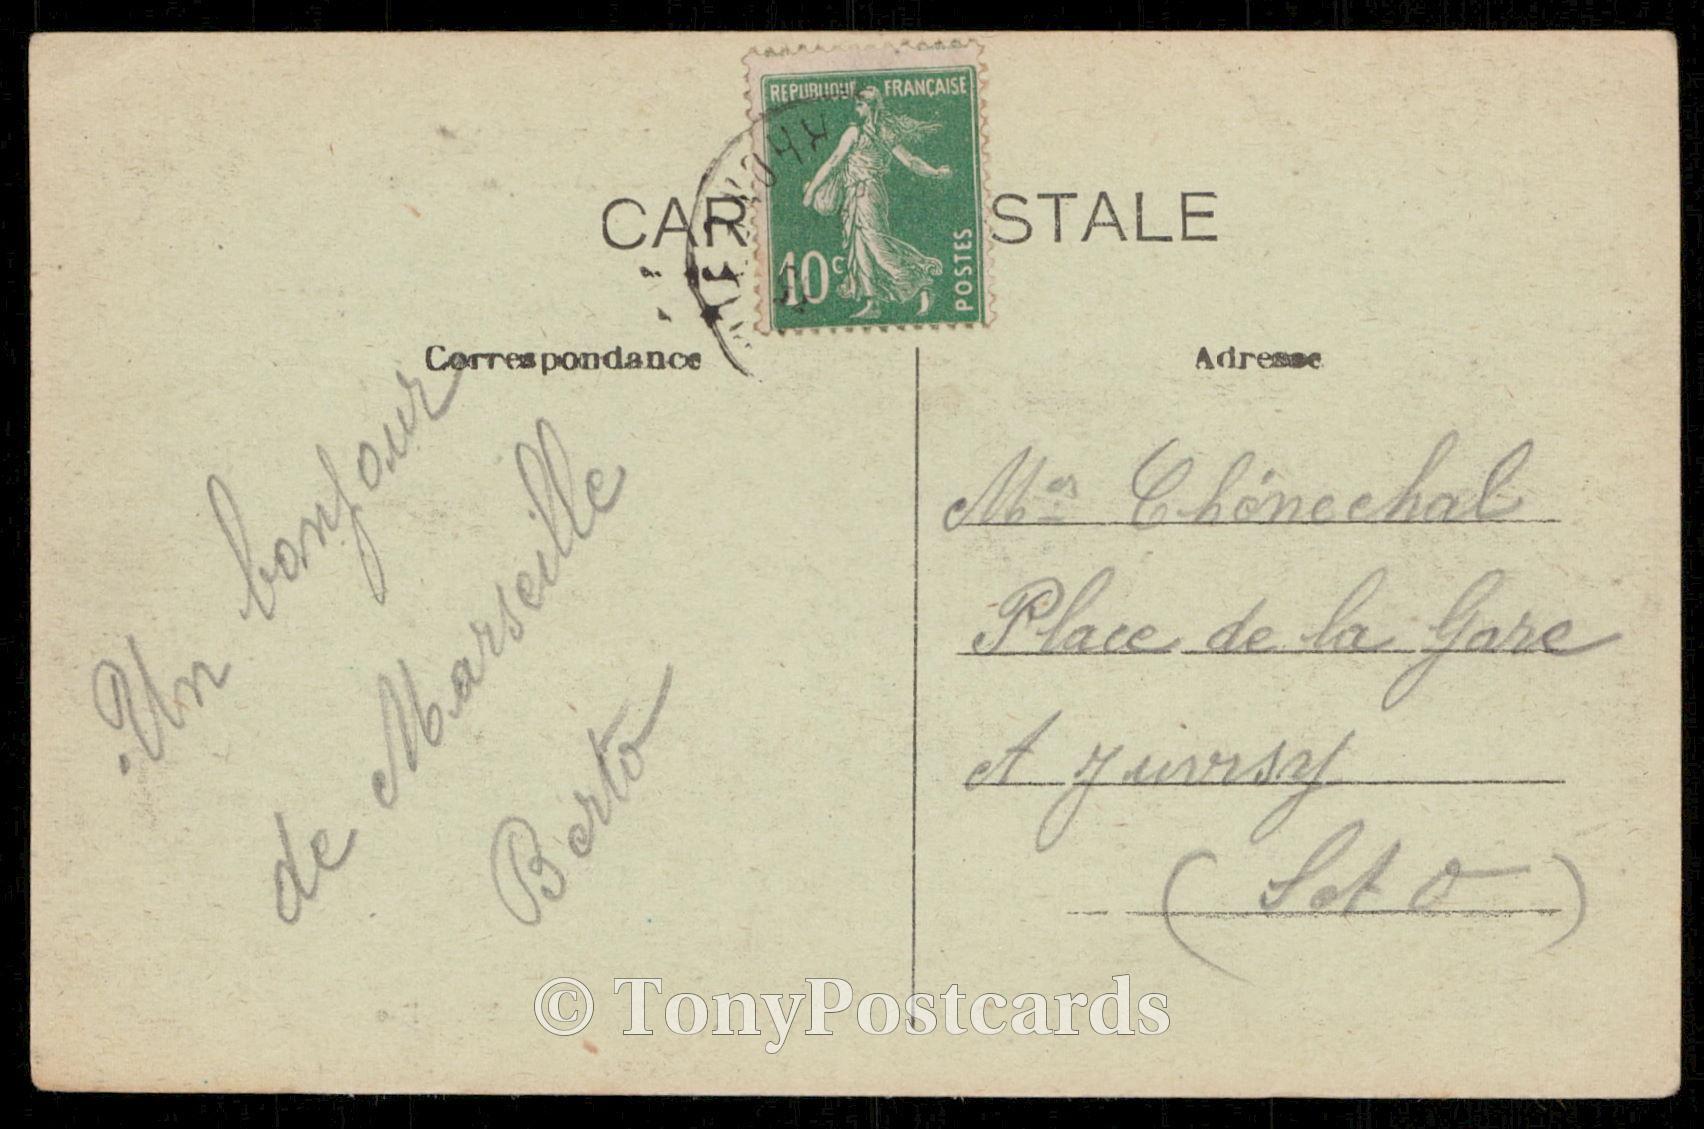 REPUBLIQUE FRANÇAISE
10c
POSTES
CAR STALE
Correspondance
Adresse
Un bonjour
de Marseille
Berto
Chénechal
Place de la Gare
A Juvisy
(S et O)
© TonyPostcards